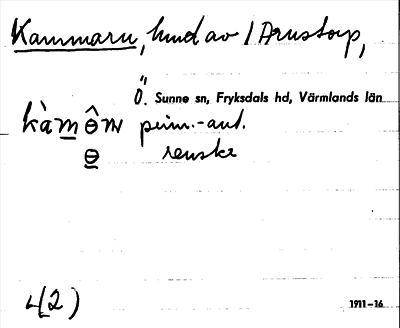 Kammaru, hmd av 1 Arnstorp,
Ö. Sunne sn, Fryksdals hd, Värmlands län
kàmɵ̂m prim.-ant.
ɵ renskr
4(2)
1911-16